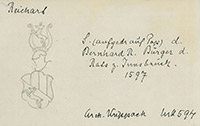 Reichart
S. (aufgedr. auf Pap) d.
Bernhard R. Bürger d.
Rats z. Innsbruck.
1597
Arch. UR 594